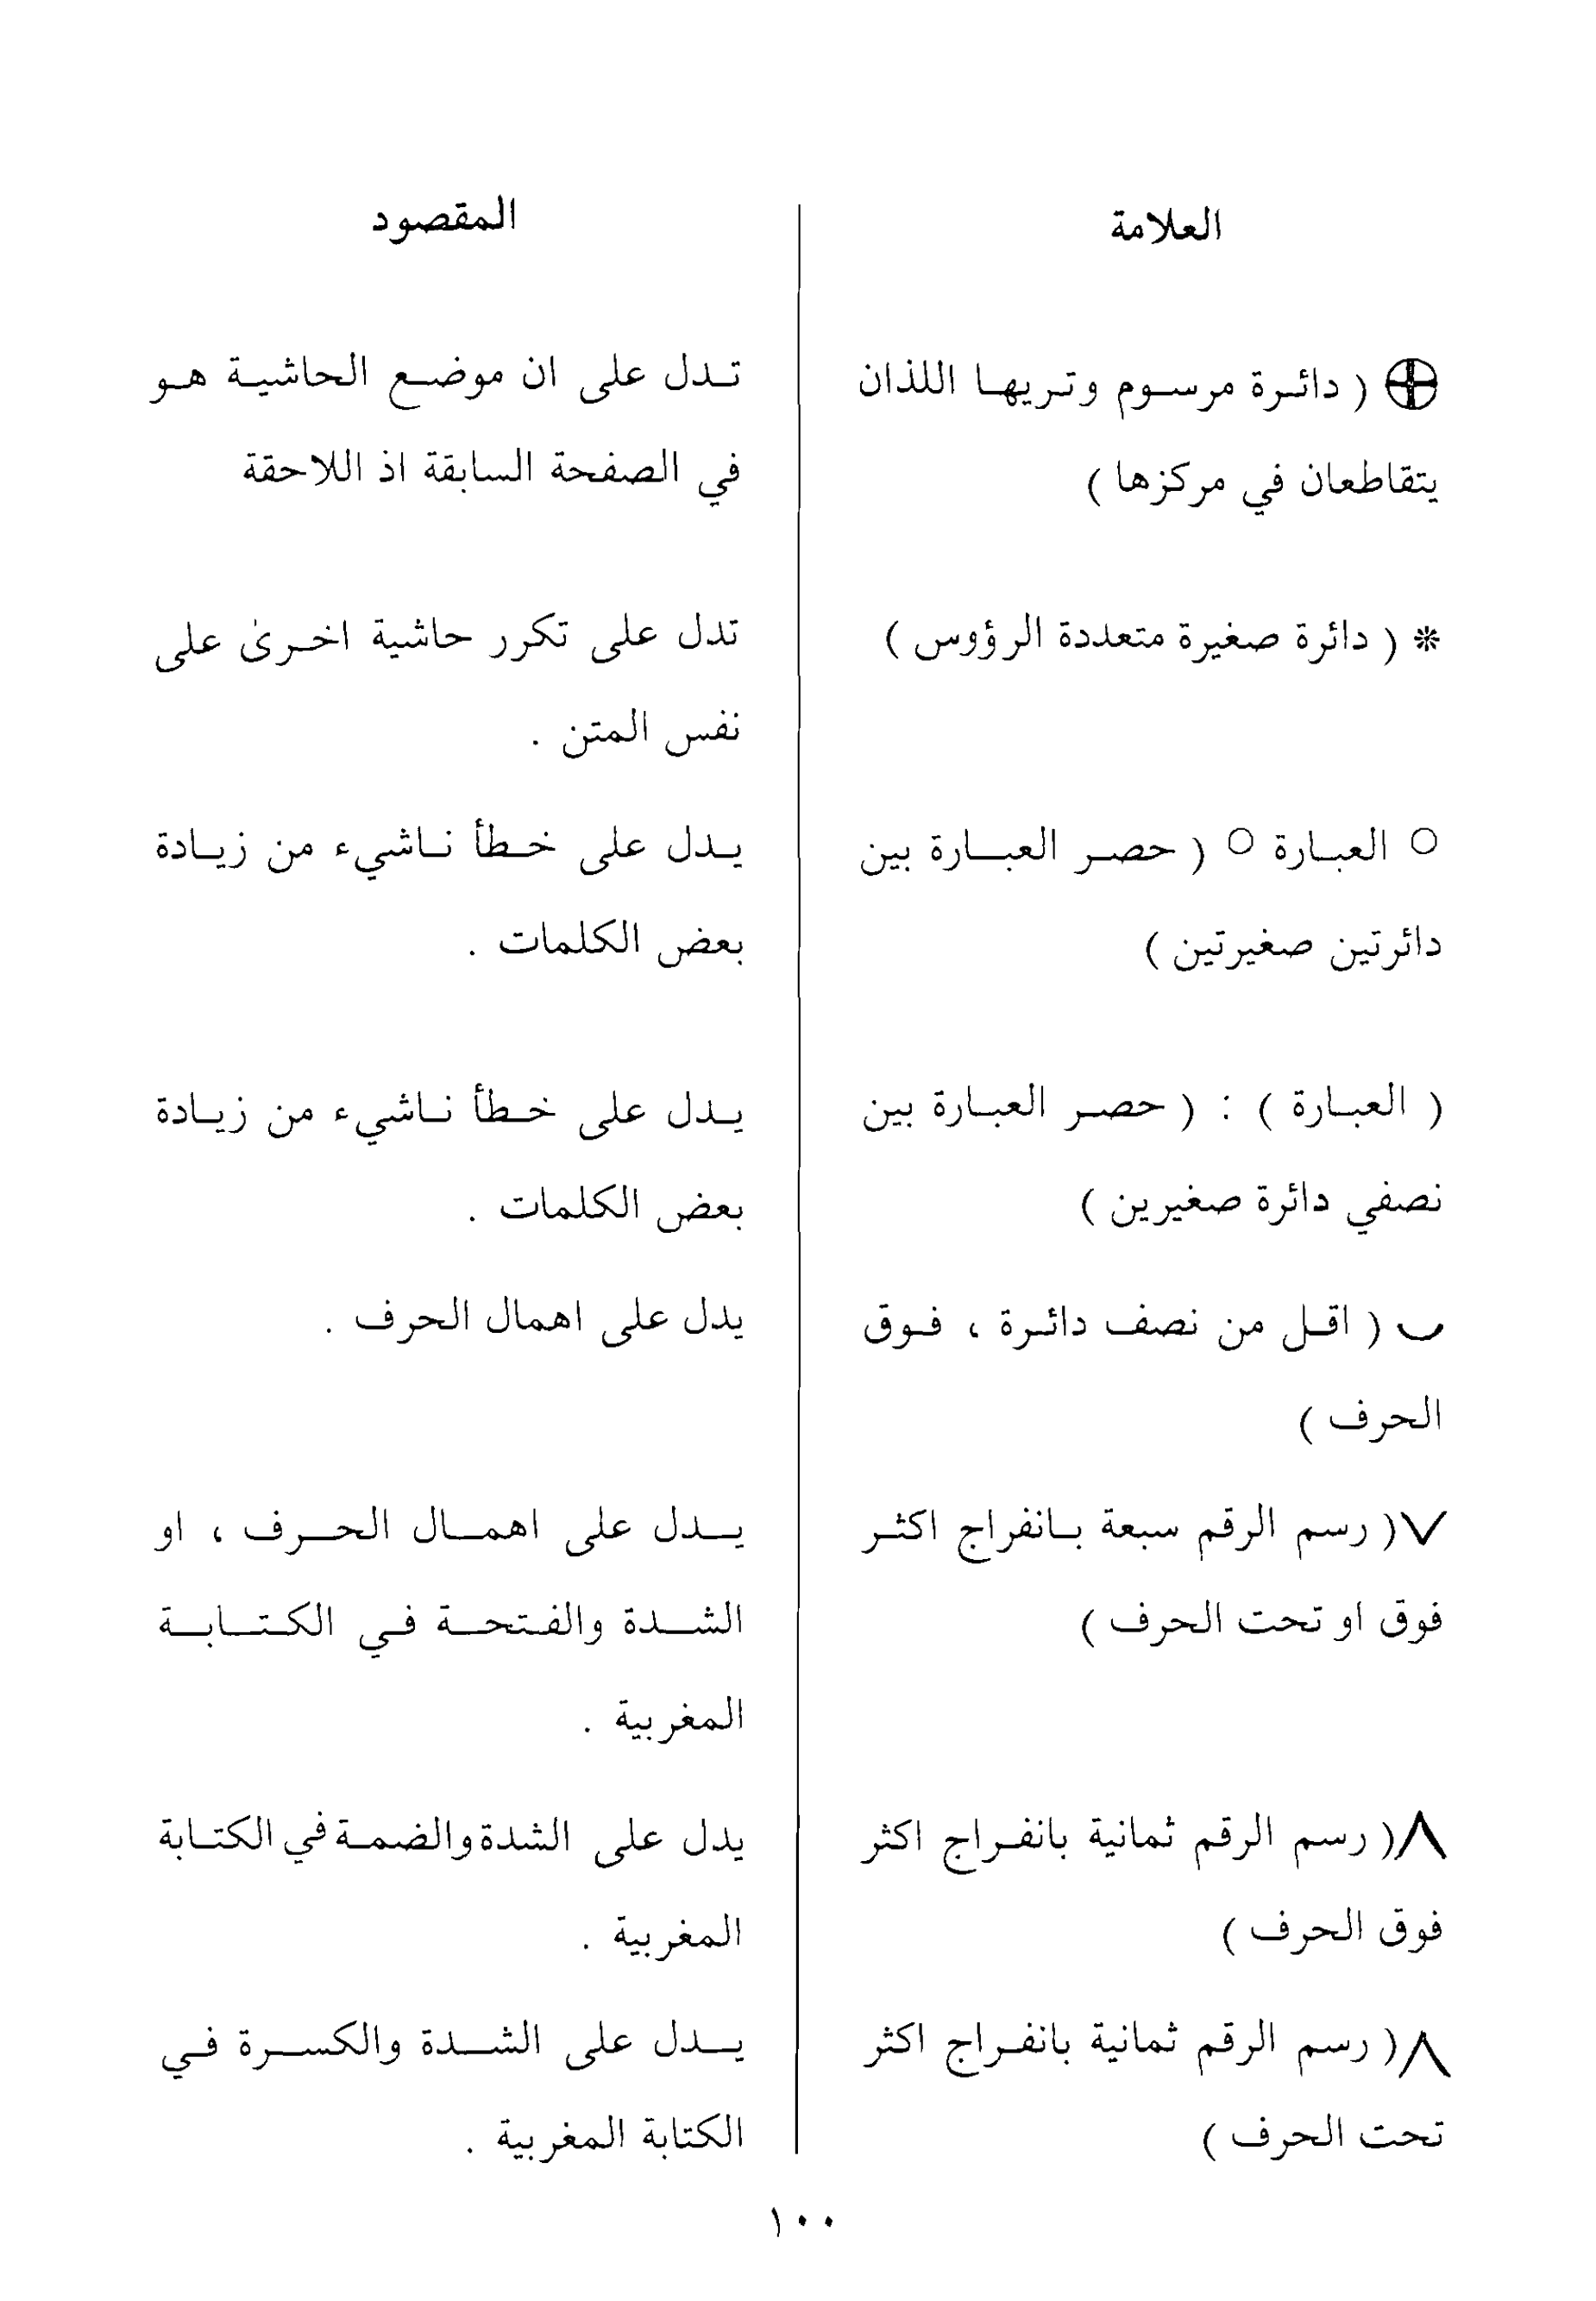 العلامة
المقصود
⊕ ( دائرة مرسوم وتريها اللذان
يتقاطعان في مركزها )
تدل على ان موضع الحاشية هو
في الصفحة السابقة اذ اللاحقة
* ( دائرة صغيرة متعددة الرؤوس )
تدل على تكرر حاشية اخرىٰ على
نفس المتن .
○ العبارة ○ ( حصر العبارة بين
دائرتين صغيرتين )
يدل على خطأ ناشيء من زيادة
بعض الكلمات .
( العبارة ) : ( حصر العبارة بين
نصفي دائرة صغيرين )
يدل على خطأ ناشيء من زيادة
بعض الكلمات .
‿ ( اقل من نصف دائرة ، فوق
الحرف )
يدل على اهمال الحرف .
٧( رسم الرقم سبعة بانفراج اكثر
فوق او تحت الحرف )
يدل على اهمال الحرف ، او
الشدة والفتحة في الكتابة
المغربية .
٨( رسم الرقم ثمانية بانفراج اكثر
فوق الحرف )
يدل على الشدة والضمة في الكتابة
المغربية .
٨( رسم الرقم ثمانية بانفراج اكثر
تحت الحرف )
يدل على الشدة والكسرة في
الكتابة المغربية .
١٠٠